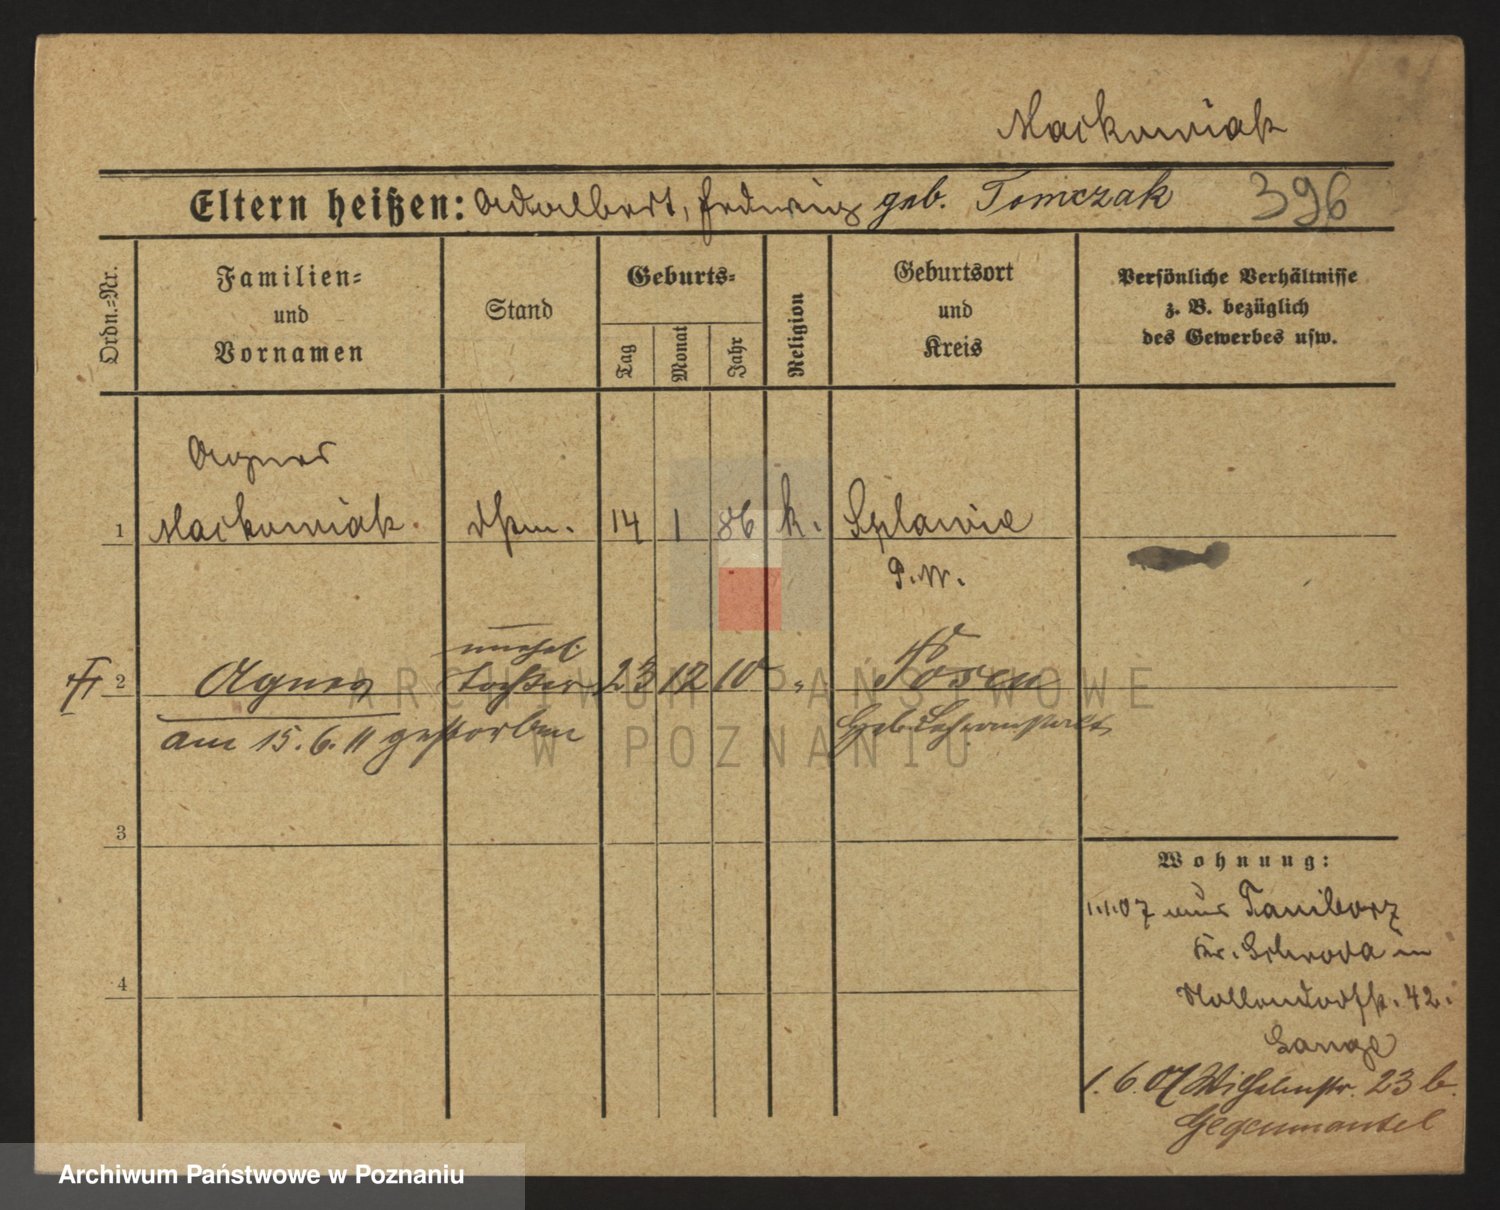 Mackowiak
Eltern heißen: Adalbert, Hedwig geb. Tomczak 396
Ordn.-Nr.
Familien-
und
Vornamen
Stand
Geburts-
Tag
Monat
Jahr
Religion
Geburtsort
und
Kreis
Persönliche Verhältnisse
z. B. bezüglich
des Gewerbes usw.
Agnes
1 Mackowiak. 14 1 86 k. Splawie
P. W.
unehel.
2 Agnes Tochter 23 12 10 " Posen
am 15. 6. 11 gestorben
Geb. Lehranstalt
ARCHIWUM PAŃSTWOWE
W POZNANIU
3
4
Wohnung:
1.1.07 aus Taniborz
Kr. Schroda in
Nollendorfstr. 42.
Lange
1. 6. 07 Wilhelmstr. 23 b.
Gegenmantel
Archiwum Państwowe w Poznaniu